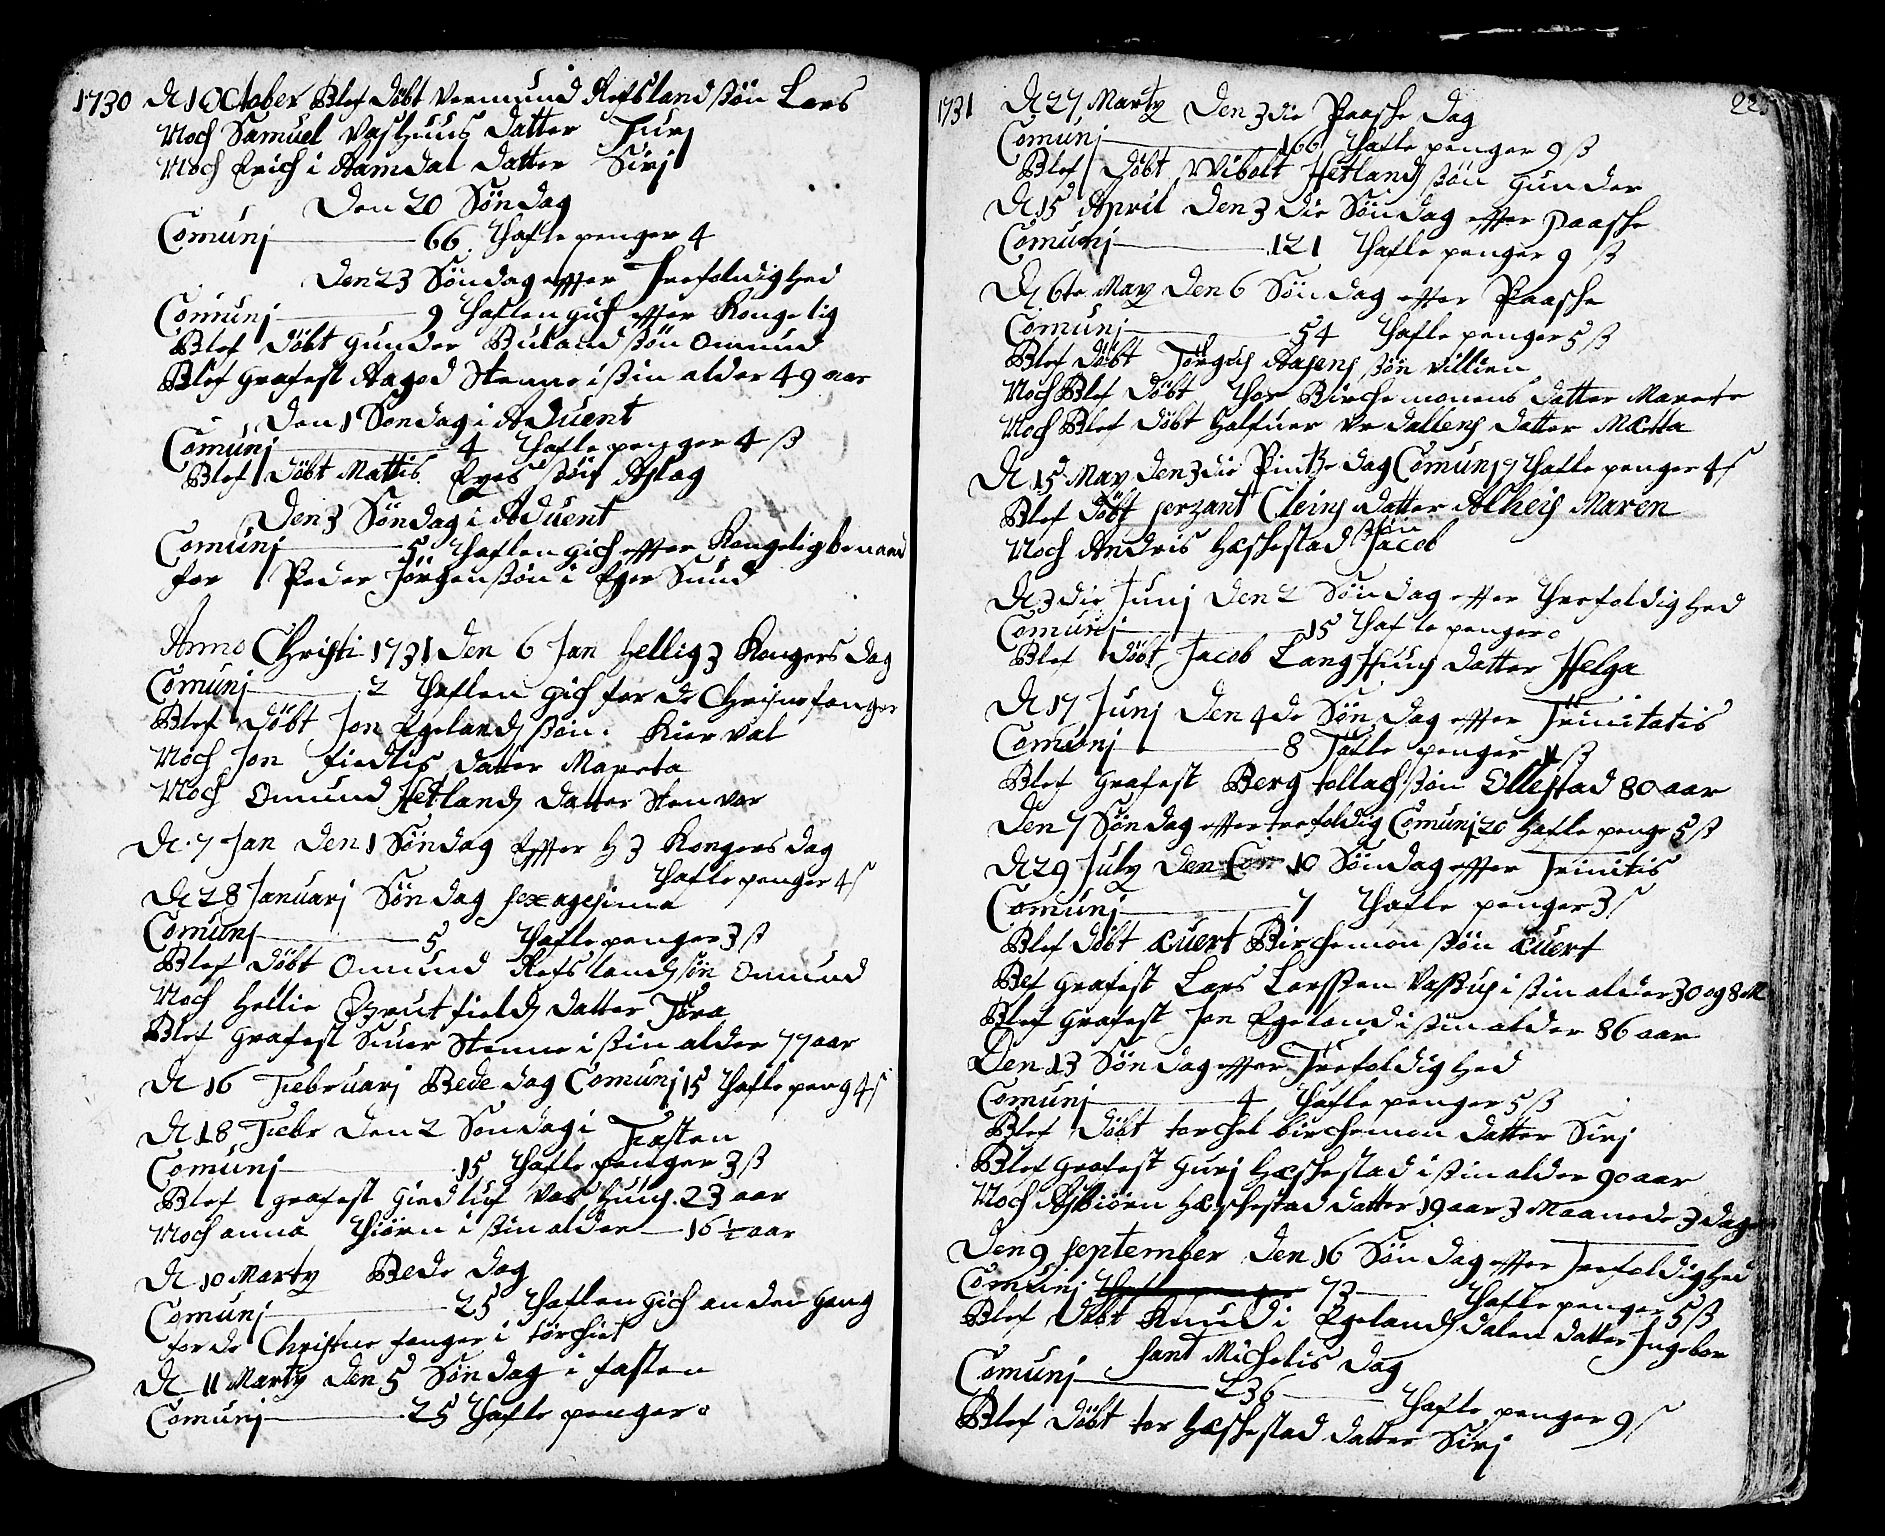 1730 D 1 October Blef Döbt Vermund Refsland ßön Lars
Noch Samuel Vashuus datter Turj
Noch Erich i Aamdal datter Sirj
Den 20 Söndag
Comunj 66 Thafle penger 4
Den 23 Söndag effter Trefoldighed
Comunj 9 Thaflen gich effter Kongelig
Blef Döbt Gunder Buland ßön Omund
Blef grafest Aagod Stenne i ßin alder 49 aar
Den 1 Söndag i Aduent
Comunj 4 Thafle penger 4 ß
Blef Döbt Mattis Eyes ßön Aslag
Den 3 Söndag i Aduent
Comunj 5 Thaflen gich effter Kongelig
for Peder Jörgenßön i Eger Sund
Anno Christi 1731 Den 6 Jan Hellig 3 Kongers Dag
Comunj 2 Thaflen gich for de Christne fanger
Blef Döbt Jon Egelands ßön Kierval
Noch Jon Fiedtis datter Mareta
Noch Omund Hetlands datter Stenvor
D. 7 Jan Den 1 Söndag Effter H 3 Kongers dag
Thafle penger 4 ß
D 28 Januarj Söndag Sexagesima
Comunj 5 Thafle penger 3 ß
Blef Döbt Omund Refslands ßön Omund
Noch Hellie datter Tora
Blef grafest Siuer Stenne i ßin alder 77 aar
D 16 Februarj Bede dag Comunj 15 Thafle peng 4 ß
D 18 Febr Den 2 Söndag i Fasten
Comunj 15 Thafle penger 3 ß
Blef grafest Giedluf Vashuus 23 aar
Noch anna Thiörn i ßin alder 16 ½ aar
D 10 Marty Bede dag
Comunj 25 Thaflen gich anden gang
for de Christne fanger i
D 11 Marty Den 5 Söndag i fasten
Comunj 25 Thafle penger 0
1731 D 27 Marty Den 3die Paasche Dag
Comunj 166 Thafle penger 9 ß
Blef Döbt Wibolt Hetlands ßön Gunder
D 15 April Den 3die Söndag effter Paasche
Comunj 121 Thafle penger 9 ß
D 6te May Den 6 Söndag effter Paasche
Comunj 54 Thafle penger 5 ß
Blef Döbt Törgus Aasens ßön Villien
Noch Blef Döbt Thor Birchemoens datter Marete
Noch Blef Döbt Halfuer Urdallens datter Mætta
D 15 May Den 3die Pintze dag Comunj 9 Thafle penger 4 ß
Blef Döbt serzant Cleins datter Alheis Maren
Noch Andris Hæskestad ßön Jacob
D 3die Junj Den 2 Söndag effter Threfoldighed
Comunj 15 Thafle penger 0
Blef Döbt Jacob Langhuus datter Helga
D 17 Junj Den 4de Söndag effter Trinitatis
Comunj 8 Tafle penger ß
Blef grafest Berg tollach ßön Ollestad 80 aar
Den 7 Söndag effter trefoldig Comunj 20 Hafle penge 5 ß
D 29 July Den 10 Söndag effter Trinitis
Comunj 7 Thafle penger 3 ß
Blef Döbt Euert Birchemon ßön Euert
Bef grafest Lars Larßen Vaßhus i ßin alder 30 og 8 M
Blef grafest Jon Egeland i ßin alder 86 aar
Den 13 Söndag effter Trefoldighed
Comunj 4 Thafle penger 5 ß
Blef Döbt torchel birchemon datter Sirj
Blef grafest Gurj Hæskestad i ßin alder 90 aar
Noch Asbiörn Hæskestad datter 19 aar 3 Maanede 3 dage
Den 9 September Den 16 Söndag effter Trefoldighed
Comunj 73 Thafle penger 5 ß
Blef Döbt Knud i Egelandsdalen datter Ingebor
Sant Michelis Dag
Comunj 236 Thafle penger 9 ß
Blef Döbt tor Hæskestad datter Sirj